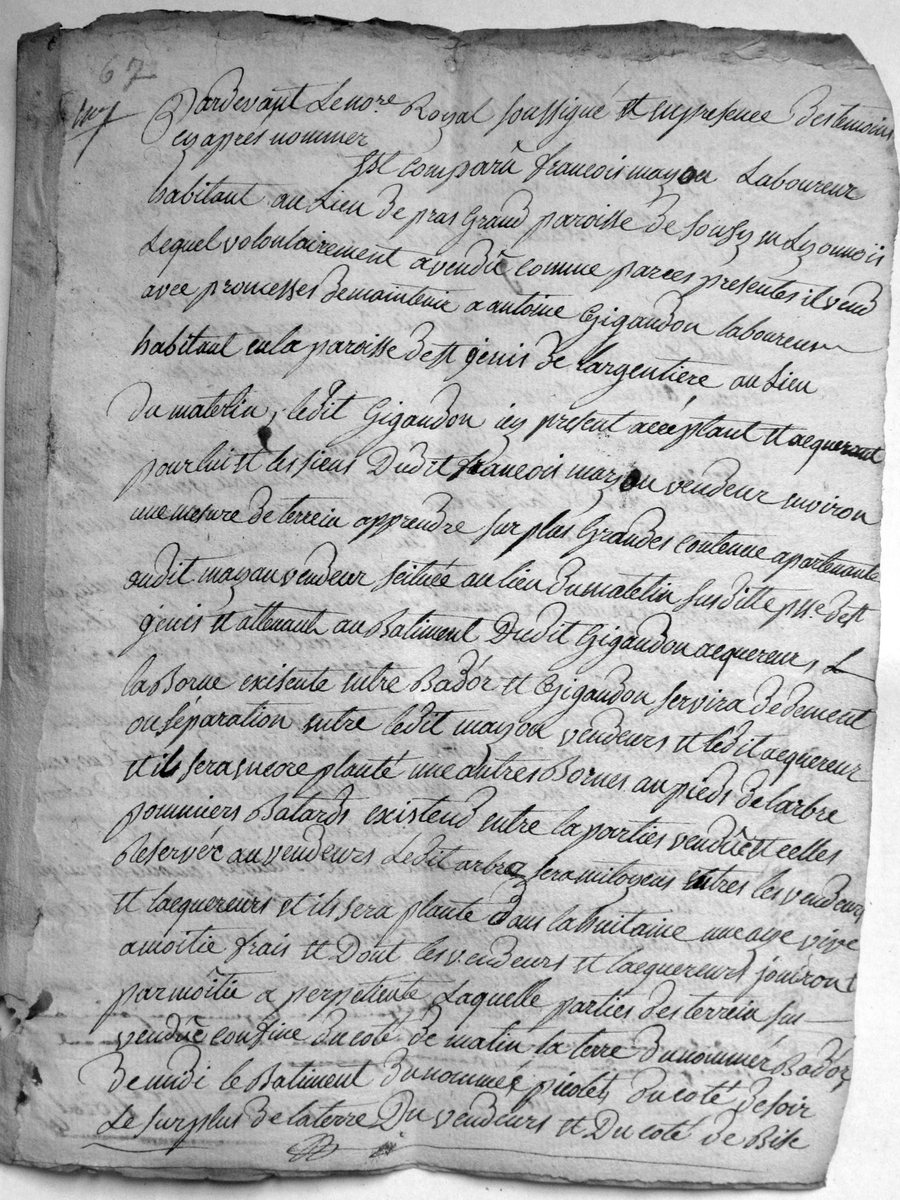 67
Pardevant Lenore Royal soussigné et en presence Des temoins
cy apres nommer
Est comparû francois mazon Laboureur
habitant au Lieu De pras Grand paroisse De Souzy en Lyonnois
Lequel volontairement a vendû comme par ces presentes il vend
avec promesses De maintenir a antoine Gigandon laboureur
habitant en la paroisse De st genis De Largentiere au Lieu
Du matelin, ledit Gigandon icy present acceptant et acquerant
pour lui et les siens Dudit francois mazon vendeur environ
une mesure De terrein apprendre sur plus Grandes contenue apartenante
audit mazon vendeur scituée au lieu Du matelin susditte psse De st
genis et attenant au Batiment Dudit Gigandon acquereur, &
la Borne existente entre Badôr et Gigandon servira De
ou séparation entre ledit mazon vendeurs et ledit acquereur
et il sera encore planté une autres Bornes au pieds De larbre
pommiers Batards existend entre la parties vendûe et celles
Reservér au vendeurs Ledit arbre sera mitoyens entres les vendeurs
et lacquereurs et ils sera planté Dans la huitaine une aye vive
a moitie frais et Dont les vendeurs et lacquereurs jouiront
par môitie a perpetuite Laquelle parties Des terrein sus
vendûe confine Du coté De matin la terre Du nommér Badôr
De midi le Batiment Du nommée picolet, Du coté De soir
Le surplus De la terre Du vendeurs et Du coté De Bise